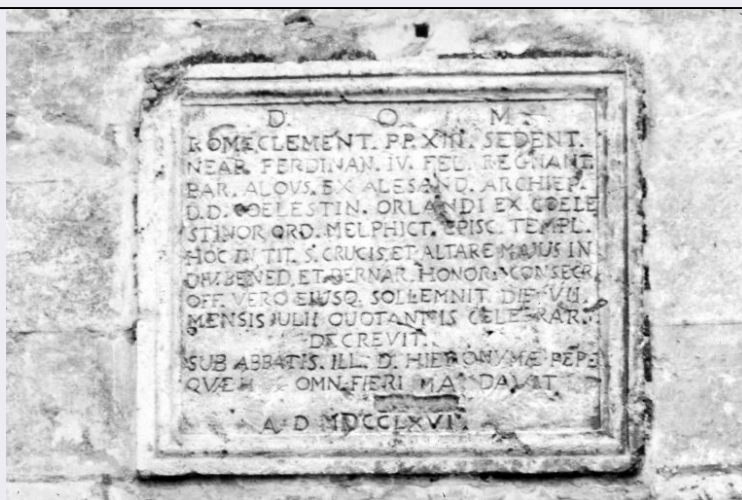 D. O. M.
ROMÆ CLEMENT. PP. XIII. SEDENT.
NEAP. FERDINAN. IV. FEL. REGNANT.
BAR. ALOYS. EX ALESAND. ARCHIEP.
D.D. COELESTIN. ORLANDI EX COELE
STINOR ORD. MELPHICT. EPISC. TEMPL.
HOC IN TIT. S. CRUCIS ET ALTARE MAJUS IN
BENED. ET BERNAR. HONOR. CONSECR.
OFF. VERO EJUSQ. SOLLEMNIT. DIE VII.
MENSIS JULII QUOTANNIS CELEBRAR.
DECREVIT.
SUB ABBATIS. ILL. D. HIERONYMÆ PEPE
QVÆ OMN. FIERI MANDAVIT
A. D MDCCLXVI.